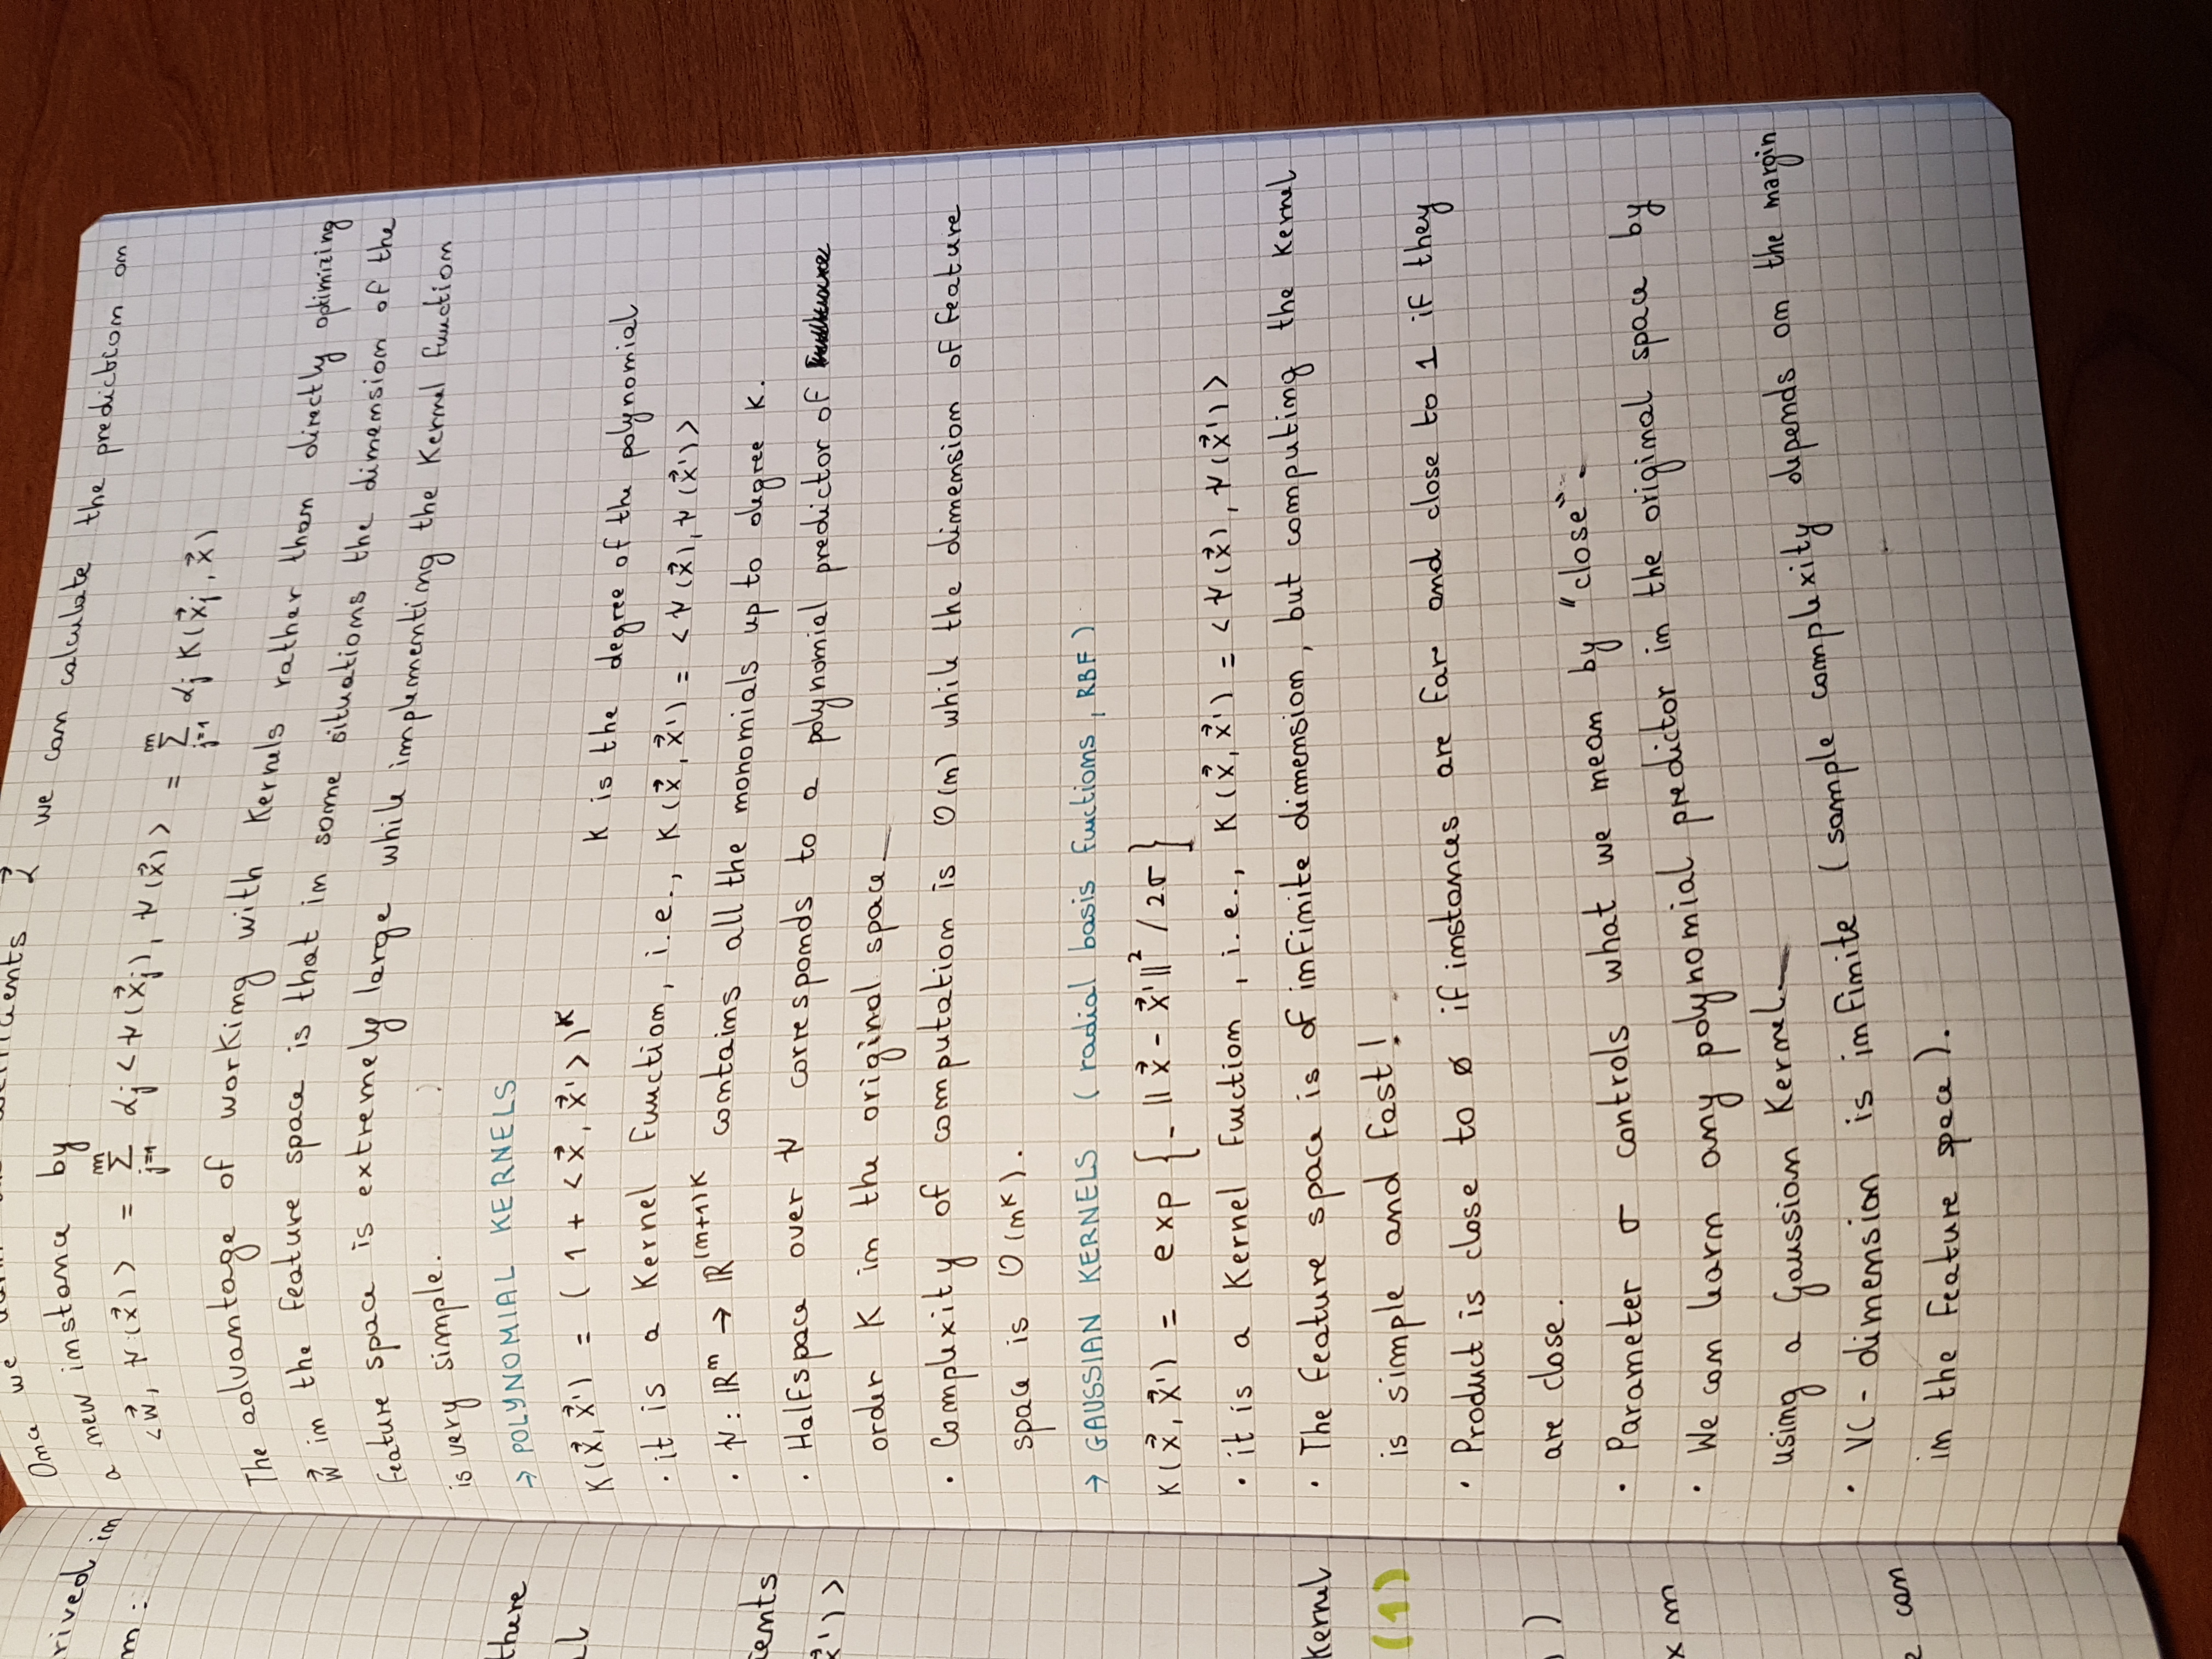 rived in
m:
there
ients
x⃗')>
Kernel
(1)
)
x m
can
Once we we can calculate the prediction on
a new instance by
<w⃗, ψ(x⃗)> = Σ_{j=1}^{m} α_j <ψ(x⃗_j), ψ(x⃗)> = Σ_{j=1}^{m} α_j K(x⃗_j, x⃗)
The advantage of working with Kernels rather than directly optimizing
w⃗ in the feature space is that in some situations the dimension of the
feature space is extremely large while implementing the Kernel function
is very simple.
→ POLYNOMIAL KERNELS
K(x⃗, x⃗') = (1 + <x⃗, x⃗'>)^K K is the degree of the polynomial
· it is a Kernel Function, i.e., K(x⃗, x⃗') = <ψ(x⃗), ψ(x⃗')>
· ψ: ℝ^n → ℝ^{(n+1)K} contains all the monomials up to degree K.
· Halfspace over ψ corresponds to a polynomial predictor of
order K in the original space.
· Complexity of computation is O(n) while the dimension of feature
space is O(n^K).
→ GAUSSIAN KERNELS (radial basis fuctions, RBF)
K(x⃗, x⃗') = exp{-||x⃗ - x⃗'||² / 2σ}
· it is a Kernel Fuction, i.e., K(x⃗, x⃗') = <ψ(x⃗), ψ(x⃗')>
· The feature space is of infinite dimension, but computing the kernel
is simple and fast!
· Product is close to ø if instances are far and close to 1 if they
are close.
· Parameter σ controls what we mean by "close".
· We can learn any polynomial predictor in the original space by
using a Gaussian Kernel.
· VC-dimension is infinite (sample complexity depends on the margin
in the feature space).